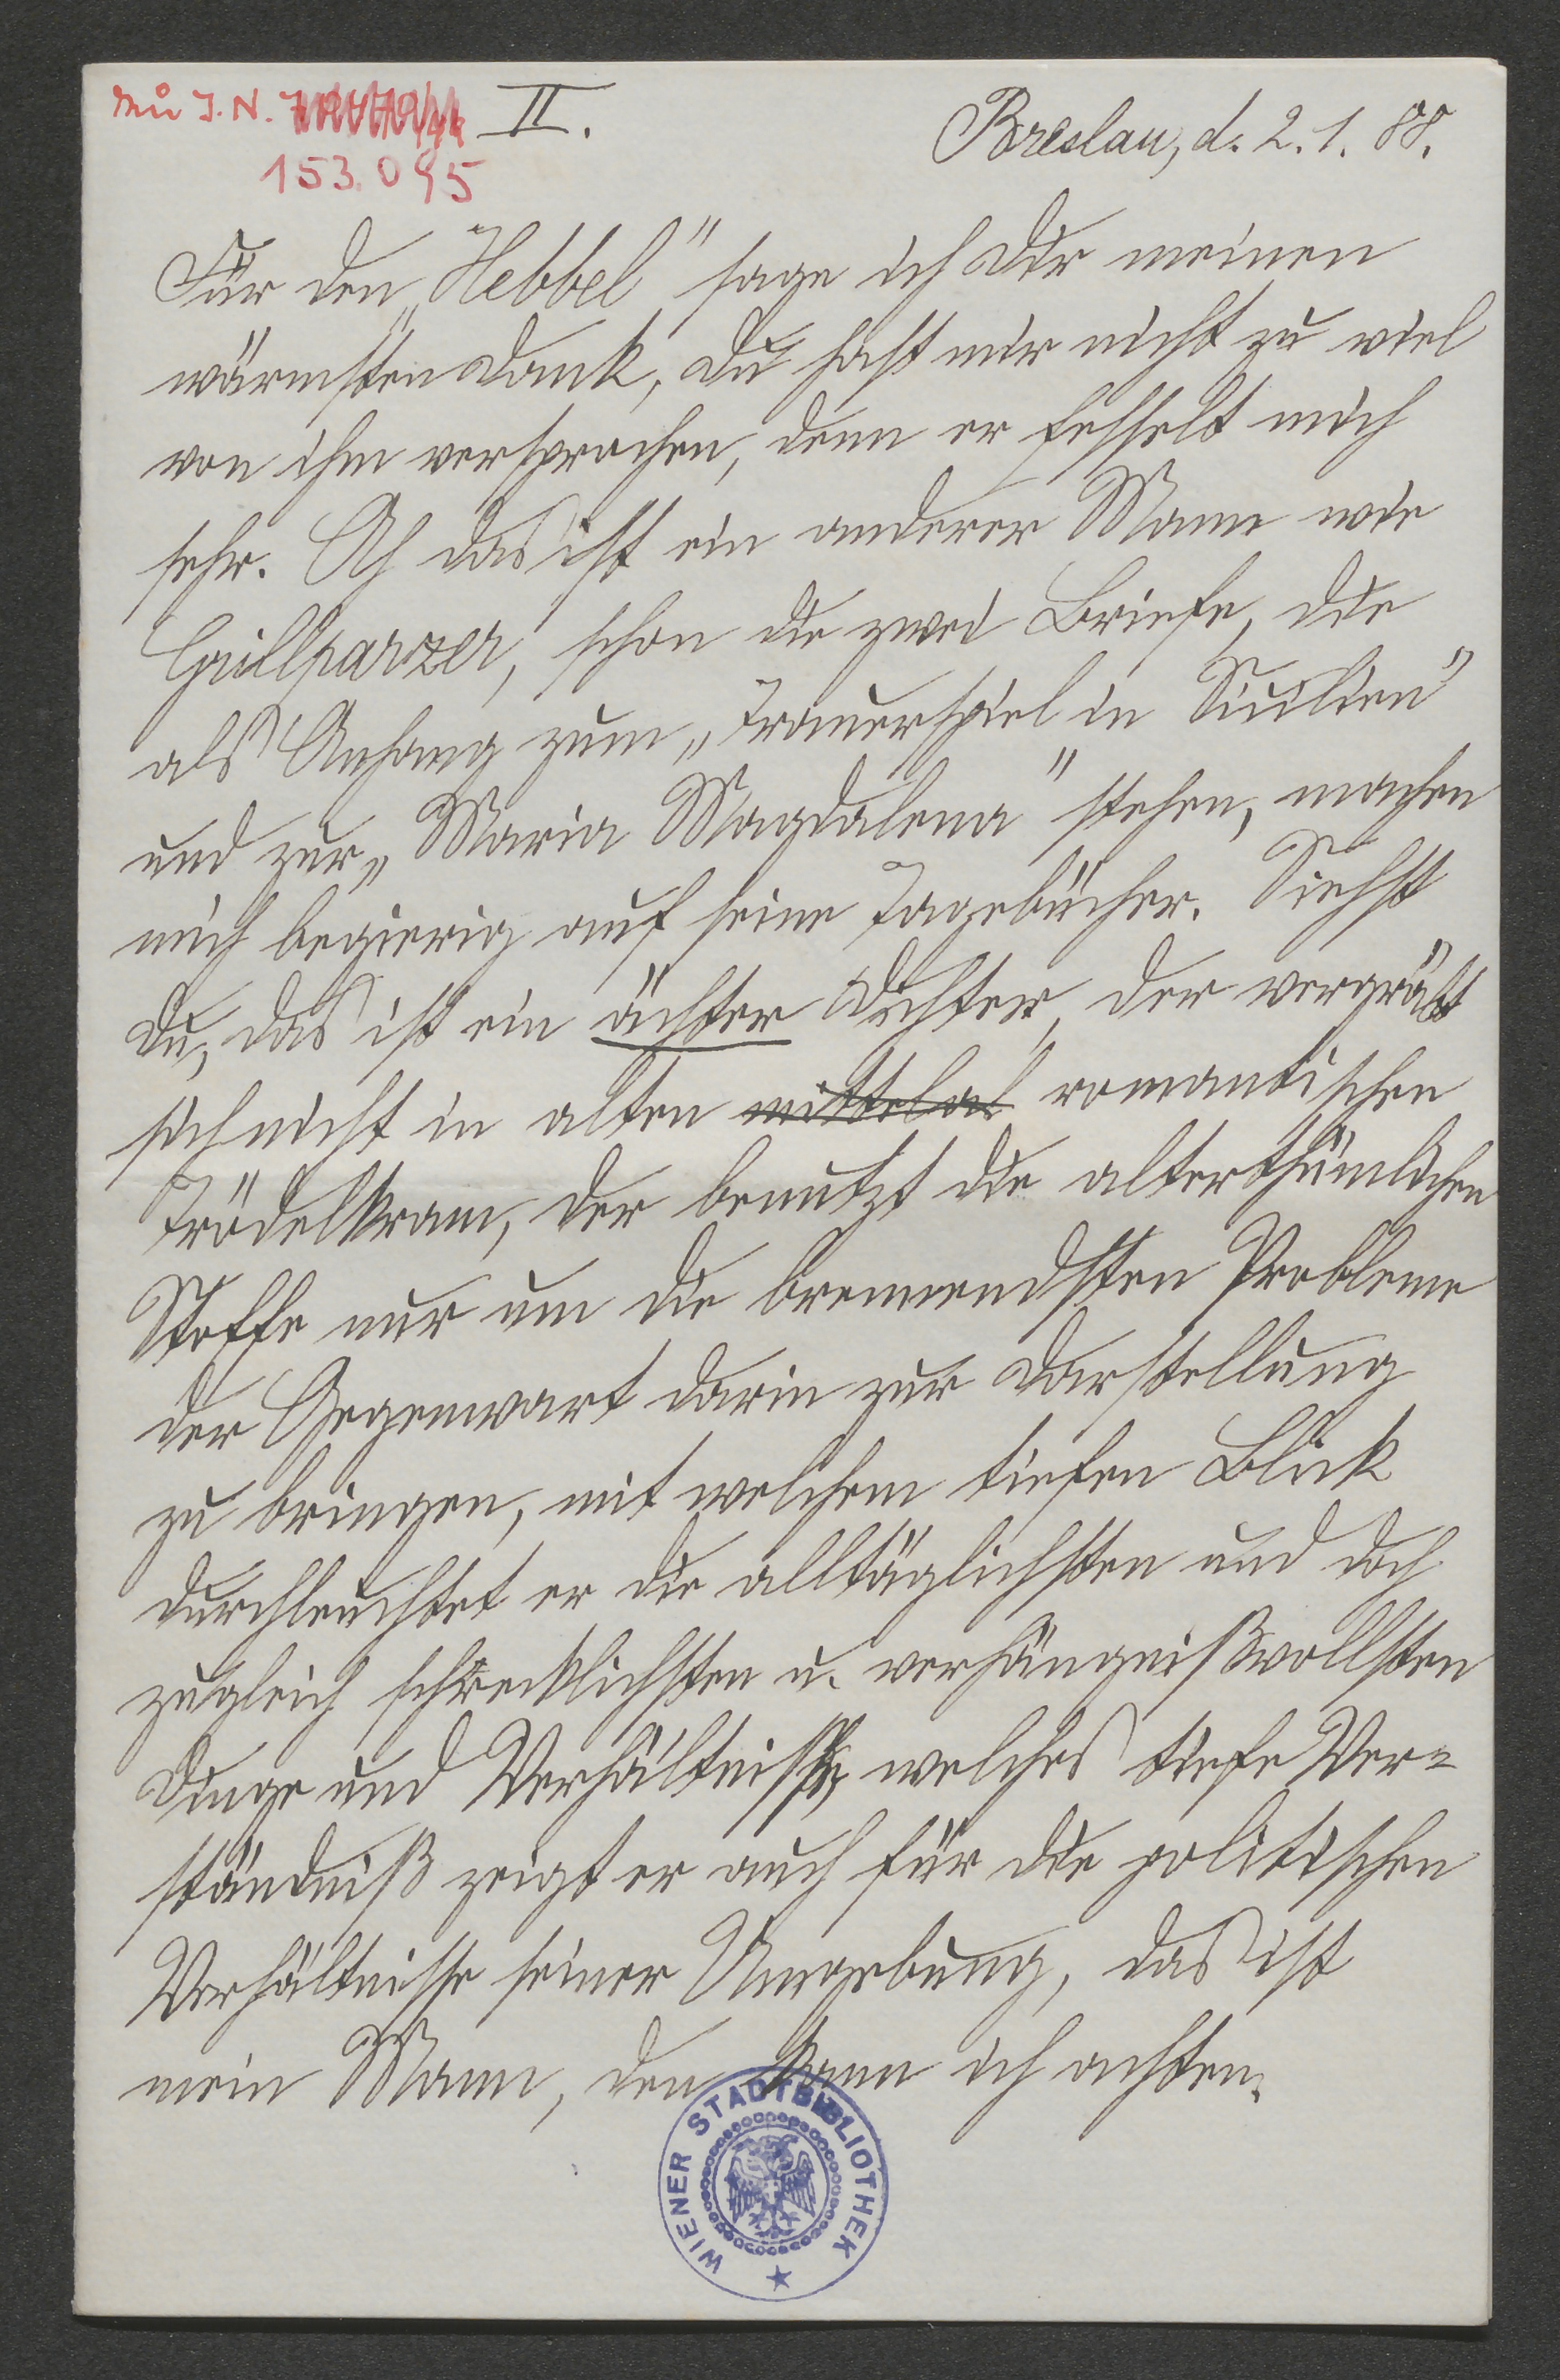 zu J. N.
II.
Breslau, d. 2. 1. 88.
153.095
Für den „Hebbel" sage ich Dir meinen
wärmsten Dank, Du hast mir nicht zu viel
von ihm versprochen, denn er fesselt mich
sehr. Ah das ist ein anderer Mann wie
Grillparzer, schon die zwei Briefe, die
als Anhang zum „Trauerspiel in Sicilien"
und zur „Maria Magdalena" stehen, machen
mich begierig auf seine Tagebücher. Siehst
Du, das ist ein ächter Dichter, der vergräbt
sich nicht in alten mittelal romantischen
Trödelkram, der benutzt die alterthümlichen
Stoffe nur um die brennendsten Probleme
der Gegenwart darin zur Darstellung
zu bringen, mit welchem tiefen Blick
durchleuchtet er die alltäglichsten und doch
zugleich schrecklichsten u. verhängnißvollsten
Dinge und Verhältnisse, welches tiefe Ver-
ständniß zeigt er auch für die politischen
Verhältnisse seiner Umgebung, das ist
mein Mann, den kann ich achten.
WIENER STADTBIBLIOTHEK